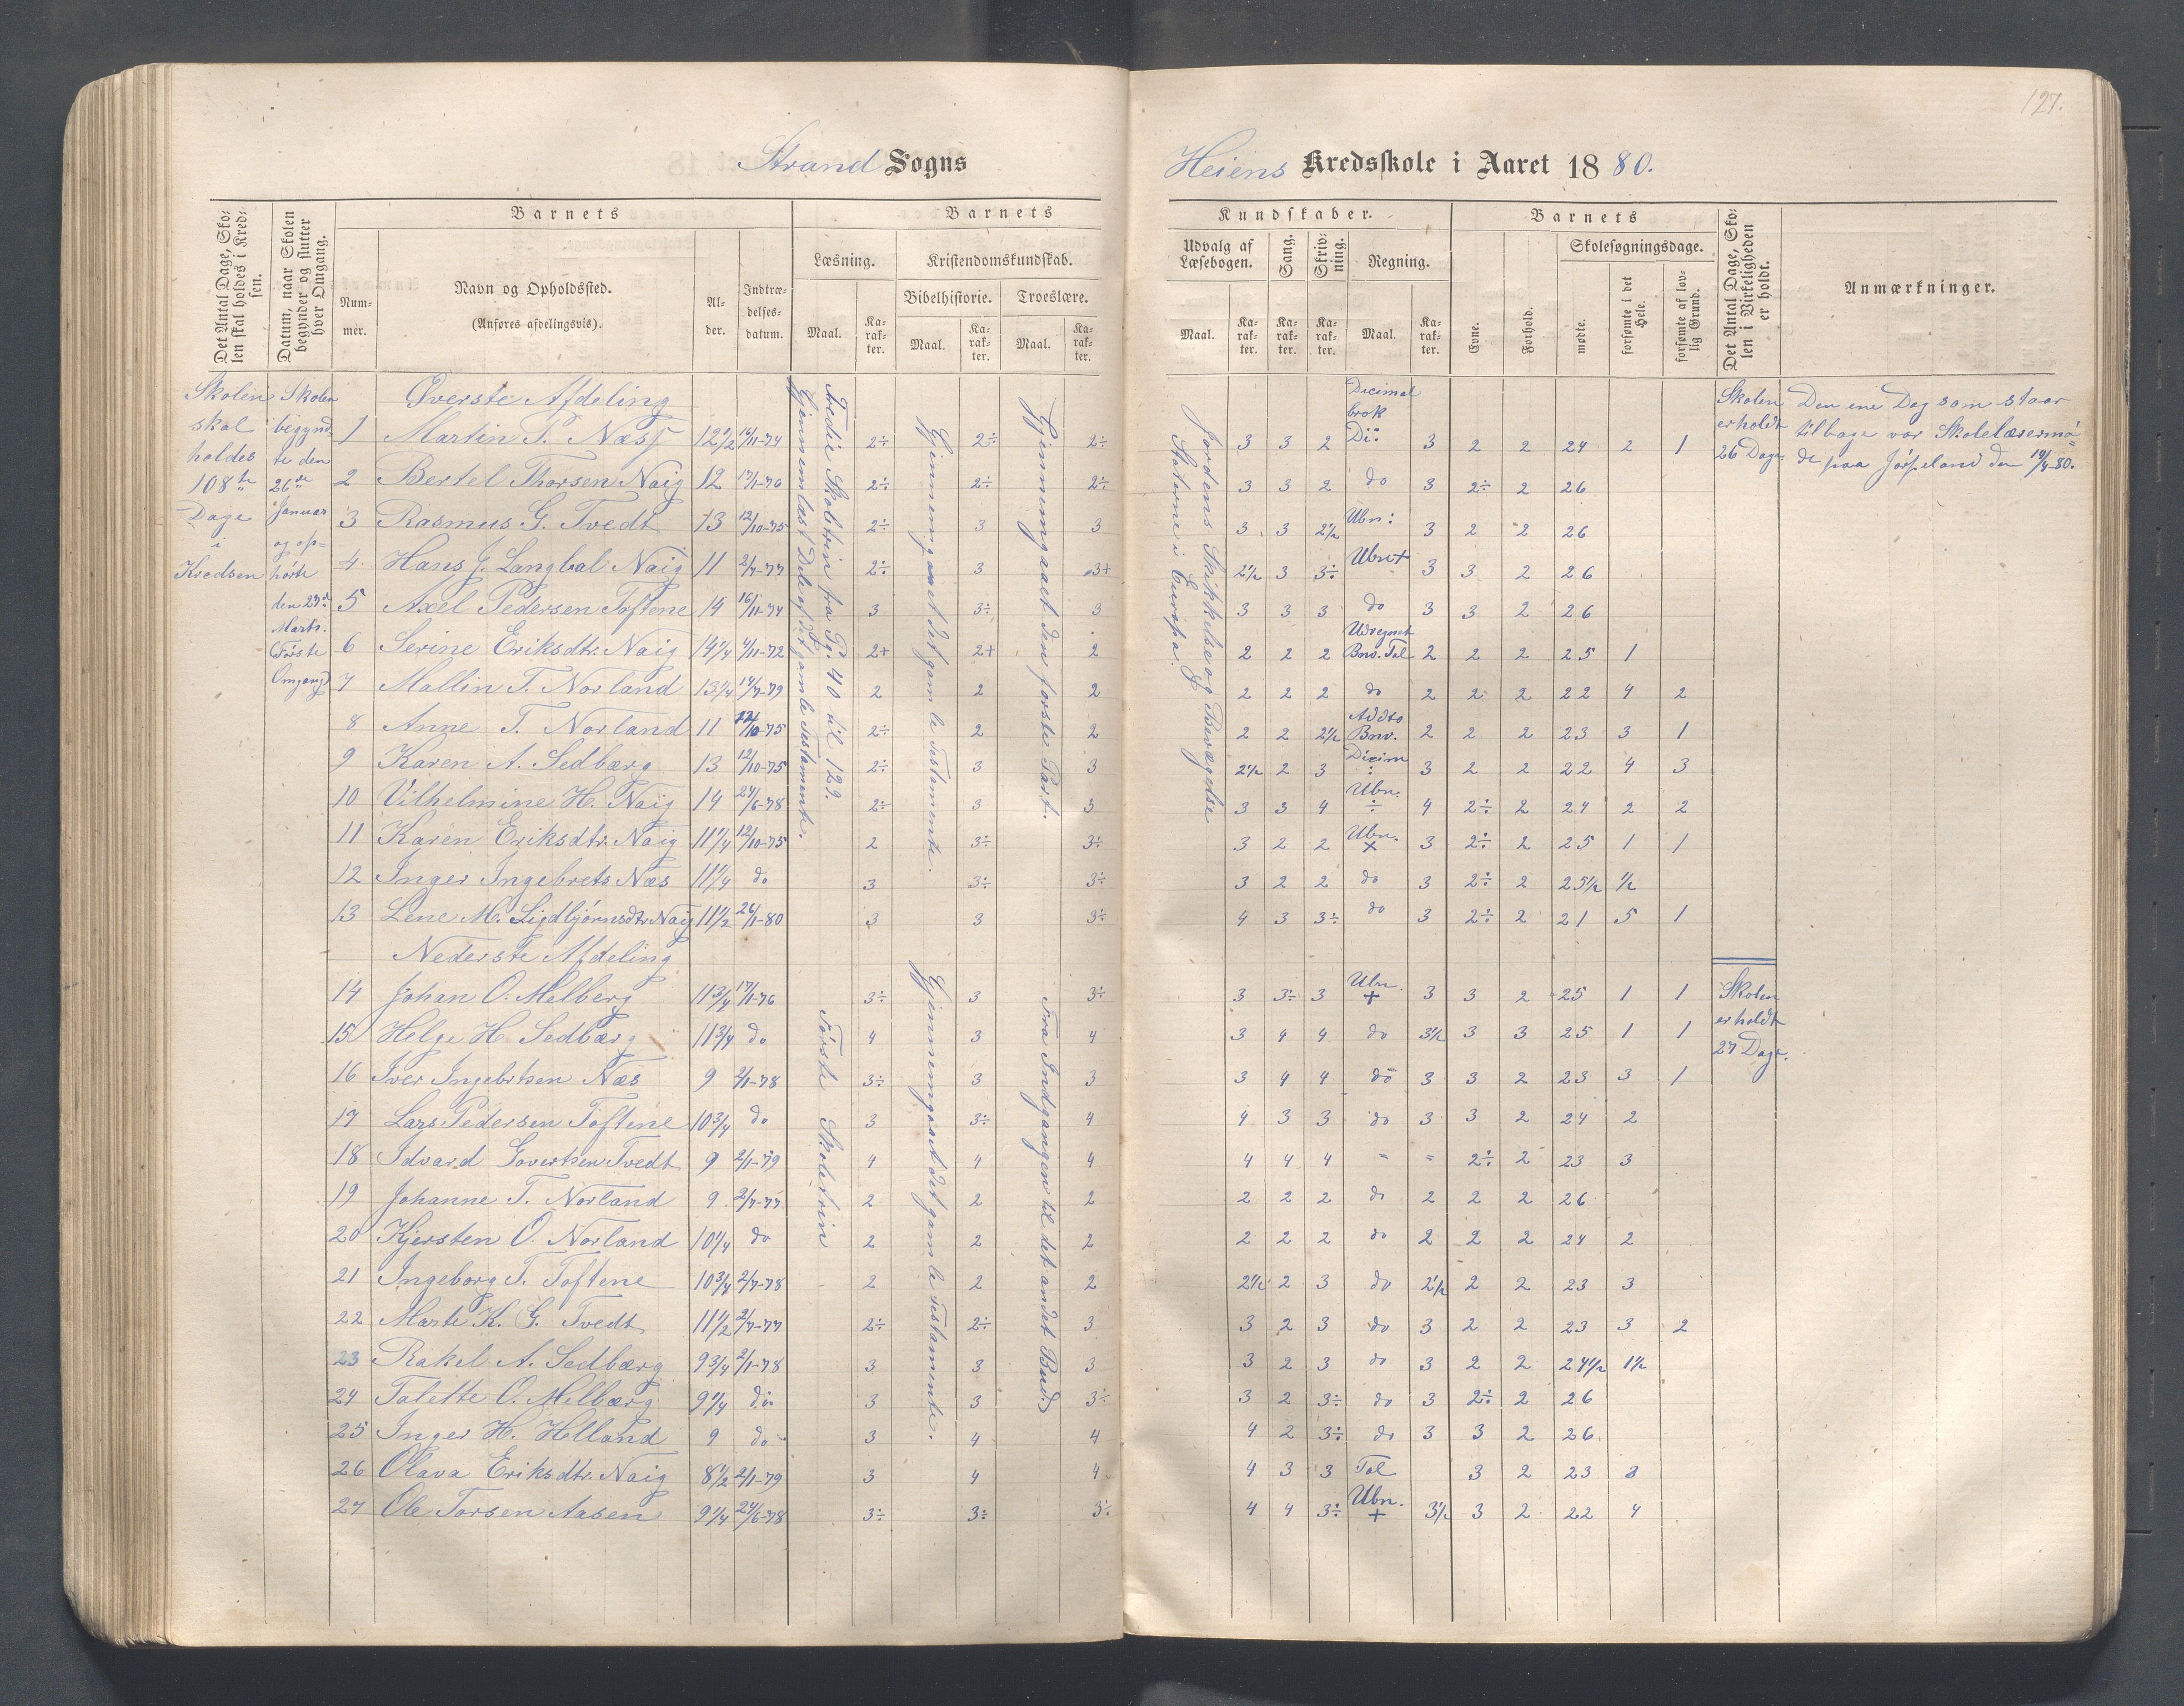 127.
Strand Sogns
Heiens Kredsskole i Aaret 1880.
Det Antal Dage, Skolen skal holdes i Kredsen.
Datum, naar Skolen begynder og slutter hver Omgang.
Barnets
Nummer.
Navn og Opholdssted.
(Anføres afdelingsvis).
Alder.
Indtrædelsesdatum.
Barnets
Læsning.
Maal.
Karakter.
Kristendomskundskab.
Bibelhistorie.
Maal.
Karakter.
Troeslære.
Maal.
Karakter.
Kundskaber.
Udvalg af Læsebogen.
Maal.
Karakter.
Sang.
Karakter.
Skrivning.
Karakter.
Regning.
Maal.
Karakter.
Barnets
Evne.
Forhold.
Skolesøgningsdage.
mødte.
forsømte i det Hele.
forsømte af lovlig Grund.
Det Antal Dage, Skolen i Virkeligheden er holdt.
Anmærkninger.
Skolen skal holdes 108te Dage i Kredsen
Skolen begyndte den 26de Januar og ophørte den 27de Marts. Første Omgang
Tredie Skoletrin fra Pg. 40 til 129.
Gjennemlæst Dele af det gamle Testamente.
Gjennemgaaet det gamle Testamente.
Gjennemgaaet den første Part.
Jordens Skikkelse og Bevægelse
Staterne i Europa.
Øverste Afdeling
1 Martin P. Næss 12 1/2 16/11-74 2÷ 2÷ 2÷ 3 3 2 Decimal brok Di: 3 2 2 24 2 1
2 Bertel Thorsen Naig 12 17/1-76 2÷ 2÷ 2÷ 3 3 2 do 3 2÷ 2 26
3 Rasmus G. Tvedt 13 12/10-75 2÷ 3 3 3 3 2 1/2 Ubn: 3 2 2 26
4 Hans J. Langbal Naig 11 2/7-77 2÷ 3 3+ 2 1/2 3 3÷ Ubn+ 3 3 2 26
5 Axel Pedersen Toftene 14 16/11-74 3 3÷ 3 3 3 3 do 3 3 2 26
6 Serine Eriksdtr. Naig 14 1/4 4/11-72 2+ 2+ 2 2 2 2 Bnv. Tal 2 2 2 25 1
7 Mallin T. Norland 13 1/4 14/7-79 2 2 2 2 2 2 do 2 2 2 22 4 2
8 Anne T. Norland 11 12/10-75 2÷ 2 2 2 2 2 1/2 Addto Bnv. 2 2 2 23 3 1
9 Karen A. Sedbærg 13 12/10-75 2÷ 3 3 2 1/2 2 3 Dicim : 3 2 2 22 4 3
10 Vilhelmine H. Naig 14 24/6-78 2÷ 3 3 3 3 4 Ubn. ÷ 4 2÷ 2 24 2 2
11 Karen Eriksdtr. Naig 11 1/4 12/10-75 2 3÷ 3÷ 3 2 2 Ubn. × 3 2÷ 2 25 1 1
12 Inger Ingebrets Næs 11 1/4 do 3 3÷ 3÷ 3 2 2 do 3 2÷ 2 25 1/2 1/2
13 Lene M. Ligdbjørnsdtr Naig 11 1/2 26/1-80 3 3 3÷ 4 3 3÷ do 3 2÷ 2 21 5 1
Nederste Afdeling
14 Johan O. Melberg 11 3/4 17/1-76 3÷ 3 3÷ 3 3÷ 3 Ubn. + 3 3 2 25 1 1
15 Helge H. Sedbærg 11 3/4 do 4 3 4 3 4 4 do 3 1/2 3 3 25 1 1
16 Iver Ingebrtsen Næs 9 2/1-78 3÷ 3 3 3 4 4 do 3 3 2 23 3 1
17 Lars Pedersen Toftene 10 3/4 do 3 3÷ 4 4 3 3 do 3 3 2 24 2
18 Edvard Govertsen Tvedt 9 2/1-79 4 4 4 4 4 4 " " 2÷ 2 23 3
19 Johanne T. Norland 9 2/7-77 2 2 2 2 2 2 do 2 2 2 26
20 Kjersten O. Norland 10 1/4 do 2 2 2 2 2 2 do 2 2 2 24 2
21 Ingeborg T. Toftene 10 3/4 2/7-78 2 2 2 2 1/2 2 3 do 2 1/2 2 2 23 3
22 Marte K. G. Tvedt 11 1/2 2/7-77 2÷ 2÷ 3 3 2 3 do 3 2 2 23 3 2
23 Rakel A. Sedbærg 9 3/4 2/1-78 3 3 3 3 2 3 do 3 2 2 24 1/2 1 1/2
24 Talette O. Melbærg 9 1/4 do 3 3 3÷ 3 2 3÷ do 3 2÷ 2 26
25 Inger H. Helland 9 do 3 4 4 4 2 3÷ do 3 3 2 26
26 Olava Eriksdtr. Naig 8 1/2 2/1-79 3 4 4 4 3 3 Tal 3 2 23 3
27 Ole Torsen Aasen 9 1/4 24/6-78 3÷ 3÷ 3÷ 4 4 3÷ Ubn. + 3 1/2 3 2 22 4
Første Skoletrin
Gjennemgaaet det gamle Testamente.
Fra Indgangen til det andet Bud.
Skolen er holdt 26 Dage.
Den ene Dag som staar
tilbage var Skolelæremø-
de paa Jørpeland den 19/4-80.
Skolen er holdt 27 Dage.